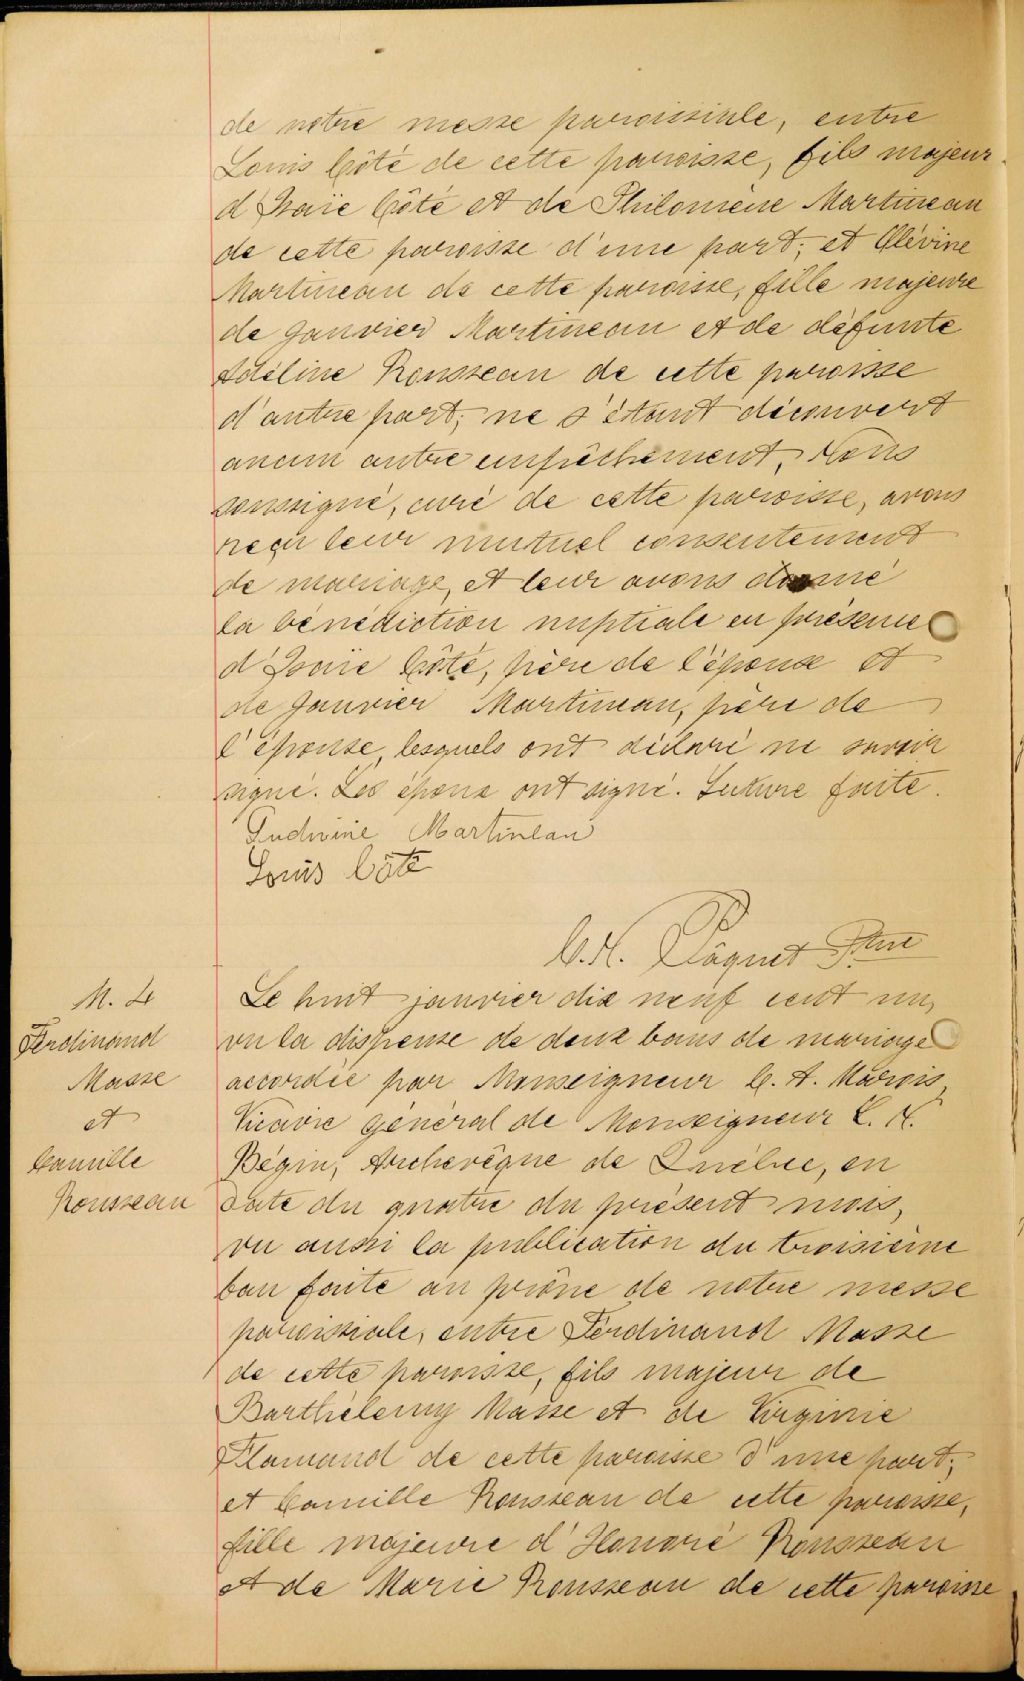 de notre messe paroissiale, entre
Louis Côté de cette paroisse, fils majeur
d'Isaïe Côté et de Philomène Martineau
de cette paroisse d'une part; et Olévine
Martineau de cette paroisse, fille majeure
de Janvier Martineau et de défunte
Adéline Rousseau de cette paroisse
d'autre part; ne s'étant découvert
aucun autre empêchement, Nous
soussigné, curé de cette paroisse, avons
reçu leur mutuel consentement
de mariage, et leur avons donné
la bénédiction nuptiale en présence
d'Isaïe Côté, père de l'époux et
de Janvier Martineau, père de
l'épouse, lesquels ont déclaré ne savoir
signé. Les époux ont signé. Lecture faite.
Ludivine Martineau
Louis Côté
C. H. Pâquet Ptre
M. 4
Ferdinand
Masse
et
Camille
Rousseau
Le huit janvier dix neuf cent un,
vu la dispense de deux bans de mariage
accordée par Monseigneur C. A. Marois,
Vicaire général de Monseigneur L. N.
Bégin, Archevêque de Québec, en
date du quatre du présent mois,
vu aussi la publication du troisième
ban faite au prône de notre messe
paroissiale, entre Ferdinand Masse
de cette paroisse, fils majeur de
Barthélemy Masse et de Virginie
Flamand de cette paroisse d'une part;
et Camille Rousseau de cette paroisse,
fille majeure d'Honoré Rousseau
et de Marie Rousseau de cette paroisse